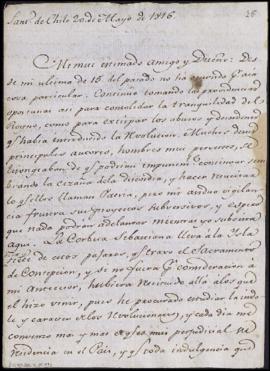 Sant.º de Chile 20 de Mayo de 1816. 28
Mi mui estimado Amigo y Dueño: des
de mi ultima de 15 del pasado no ha ocurrido
cosa particular. Continuo tomando las providencias
oportunas asi para consolidar la tranquilidad del
Reyno, como para extirpar los abusos y desordenes
q.e havia introducido la Revolucion. Muchos de sus
principales autores, hombres mui perversos, se
q.e podrian impunem.te continuar sem
brando la cizaña de la discordia, y hacer
lo q.e ellos llaman Patria, pero mi vigilan
cia frustra sus Proyectos subversivos, y espero
que nada podran adelantar mientras yo subsista
aqui. La Corbeta Sebastiana lleva á la Isla
de estos pajaros, el Sacramento
de Concepcion, y si no fuera p.r consideracion á
mi Antecesor, hubiera remitido allá á los que
el hizo venir, pues he procurado estudiar la indo
le y caracter de los Revolucionarios, y cada dia me
convenzo mas y mas q.e es mui perjudicial su
Residencia en el Pais, y q.e toda indulgencia que